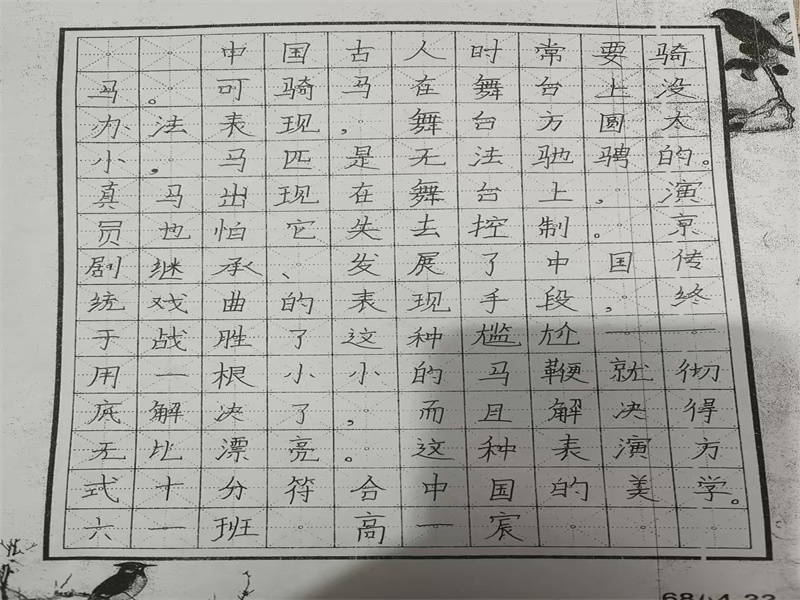 中国古人时常要骑
马。可骑马在舞台上没
办法表现,舞台方圆太
小。马匹是无法驰骋的。
真马出现在舞台上,演
员也怕它失去控制。京
剧继承、发展了中国传
统戏曲的表现手段,终
于战胜了这种尴尬——
用一根小小的马鞭就彻
底解决了,而且解决得
无比漂亮。这种表演方
式十分符合中国的美学。
六一班 高一宸